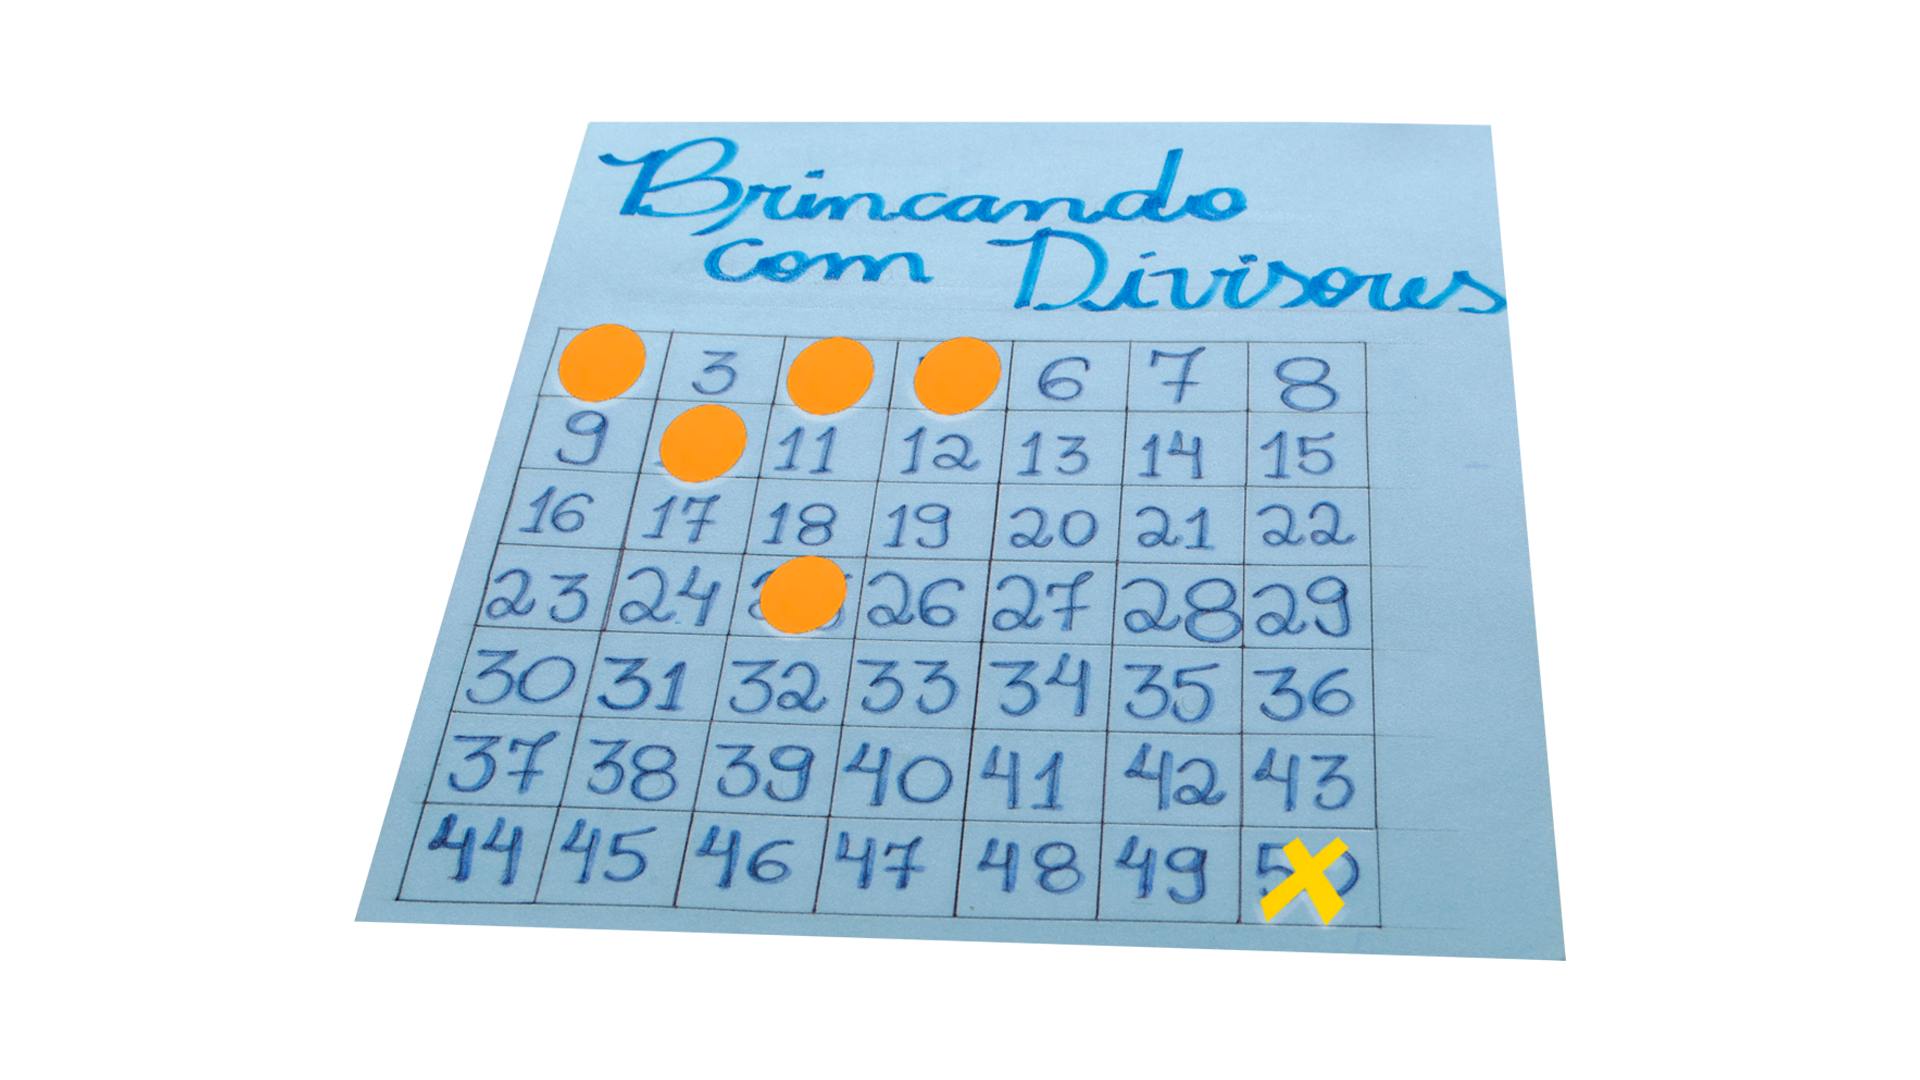 Brincando
com Divisores
3 6 7 8
9 11 12 13 14 15
16 17 18 19 20 21 22
23 24 26 27 28 29
30 31 32 33 34 35 36
37 38 39 40 41 42 43
44 45 46 47 48 49 50